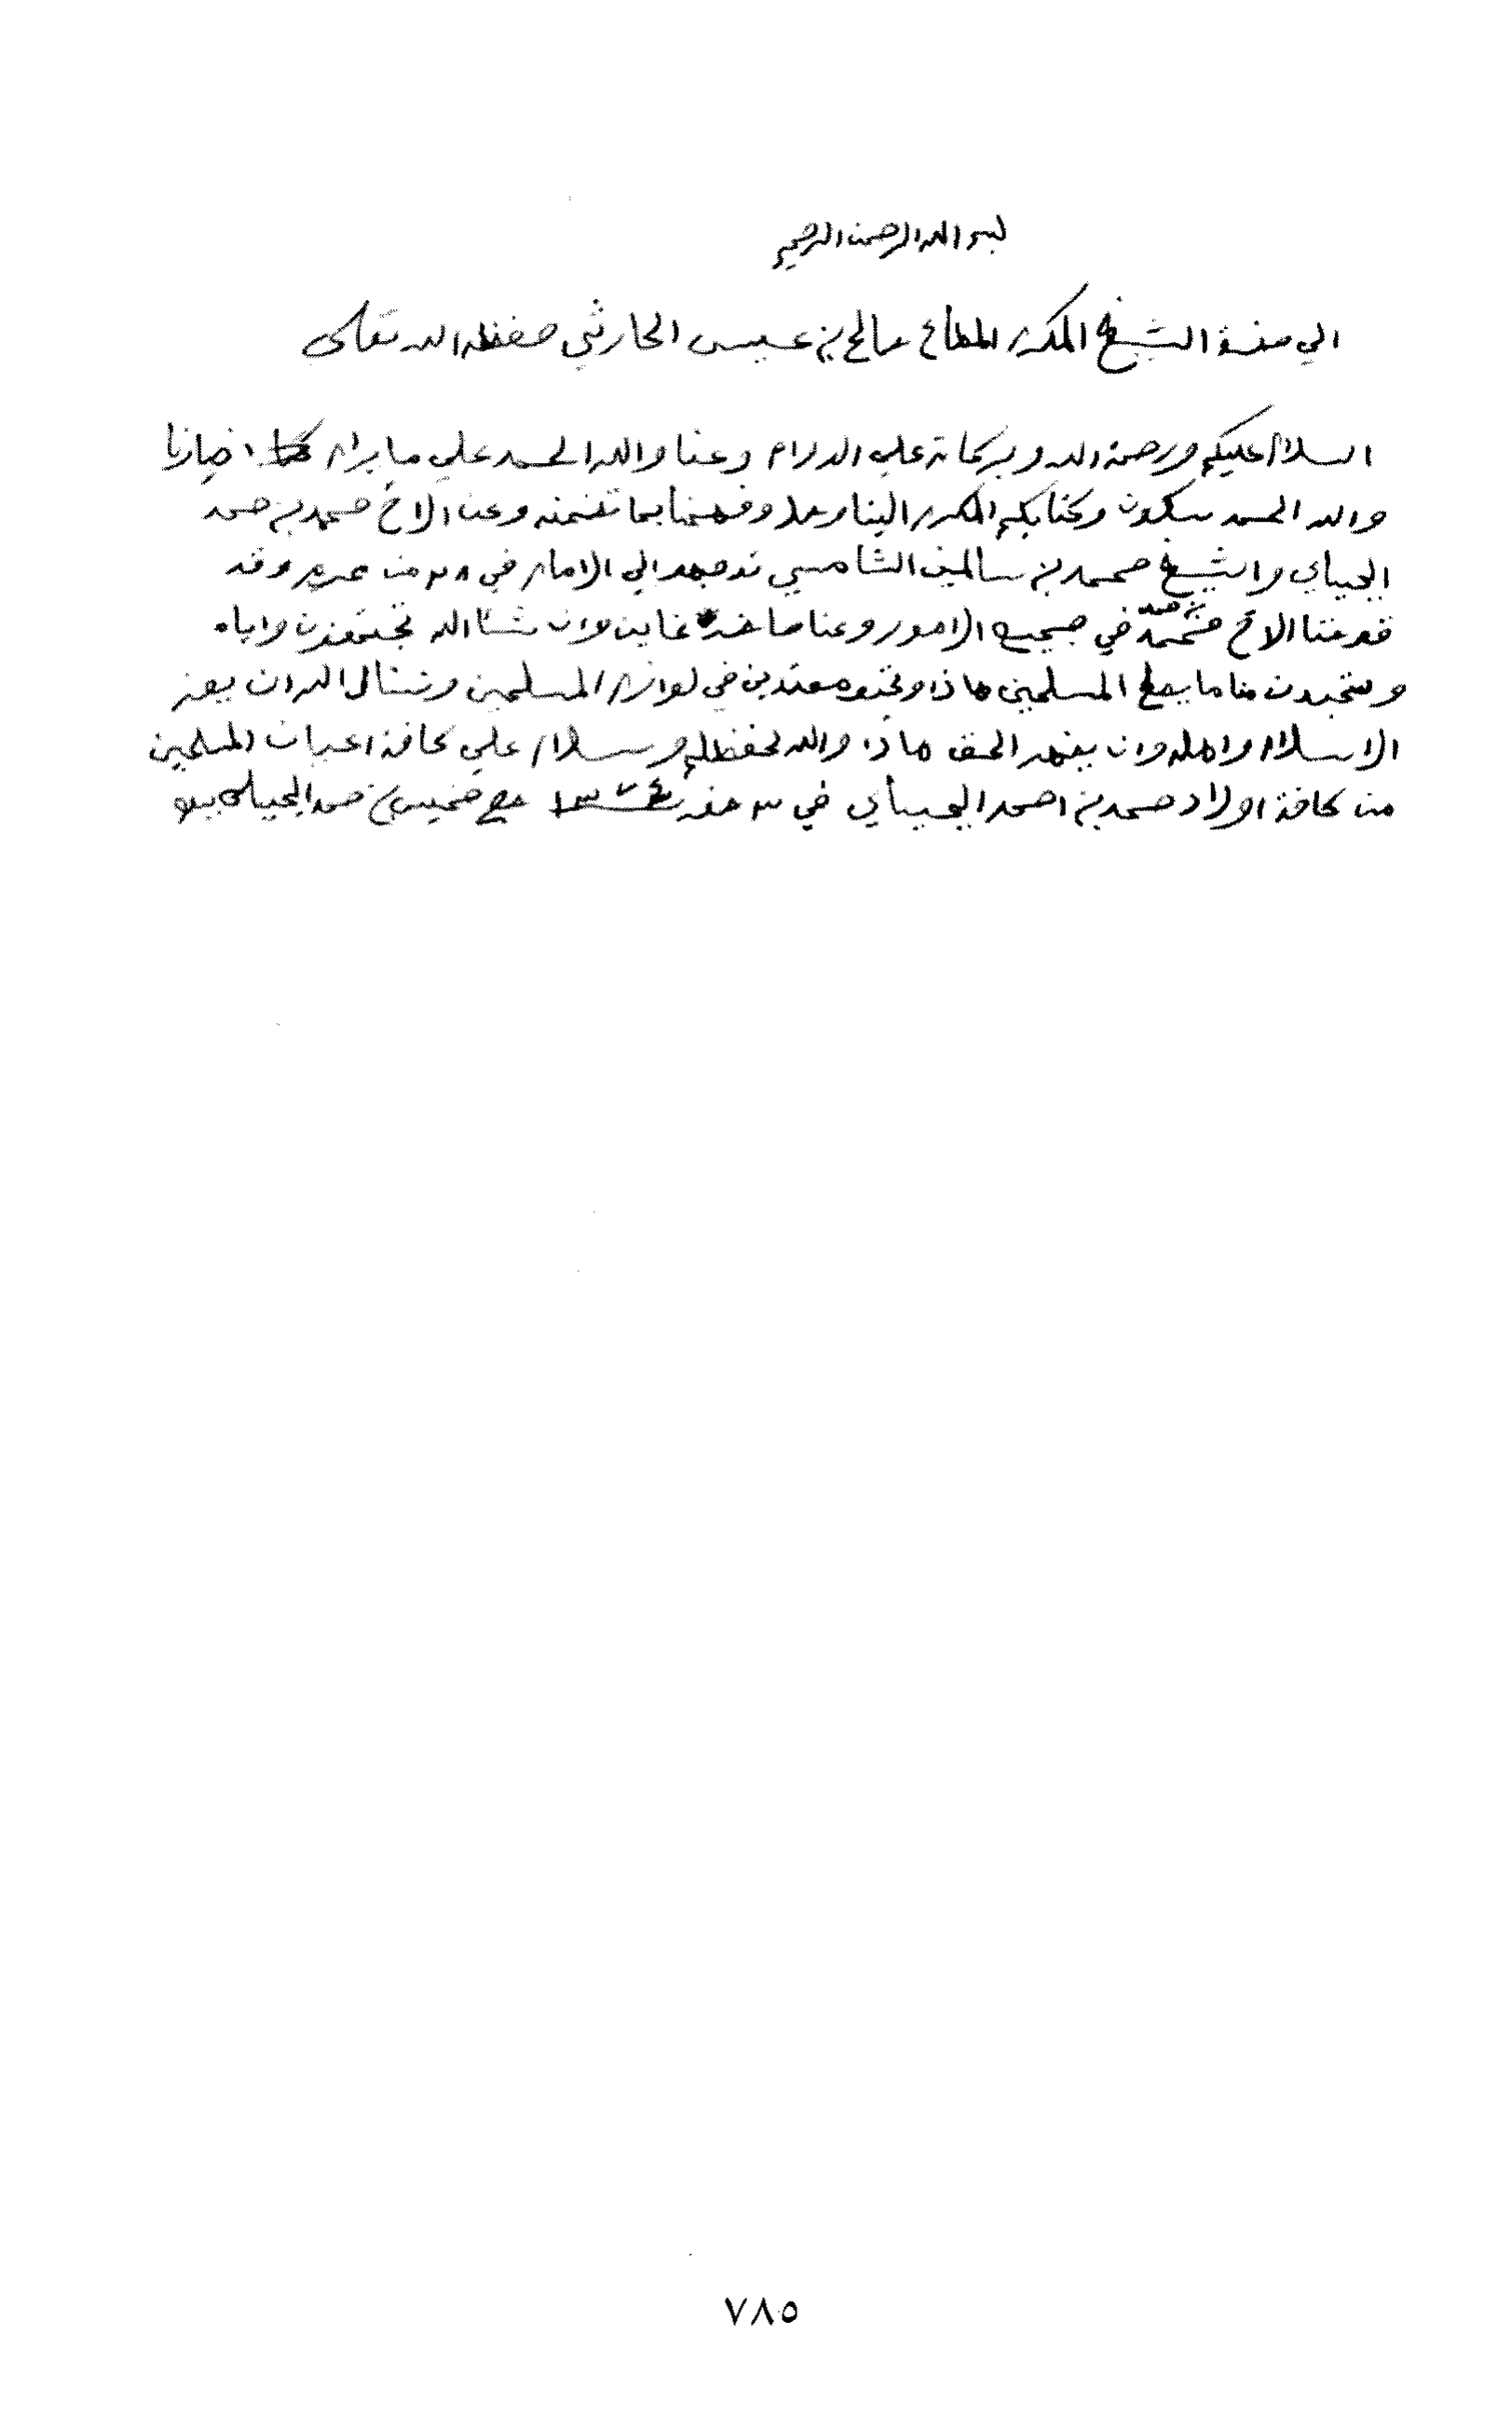 بسم الله الرحمن الرحيم
الي حضرة الشيخ المكرم المطاع صالح بن عيسى الحارثي حفظه الله تعالى
السلام عليكم ورحمة الله وبركاته علي الدوام وعنا والله الحمد علي ما يرام اخبارنا
والله الحمد سكون وكتابكم المكرم الينا وصل وفهمنا بما تضمنه وعن الاخ محمد بن حمد
الجيباي والشيخ محمد بن سالمين الشامسي توجهو الي الامام في ٢٨ من وقد
الاخ محمد بن حمد في جميع الامور وعنا ما غاين وان شاالله تجتمعون واياه
وستجدون منا ما يصلح المسلمين هاذا ونحنوه معتدين في لوازم المسلمين ونسئال الله ان يعز
الاسلام واهله وان يضهر الحق هاذا والله يحفظكم وسلام علي كافة اعيان المسلمين
من كافة اولاد حمد بن احمد الجيباي في ٣ صفر مع خميس بن حمد الجيباي بيده
٧٨٥